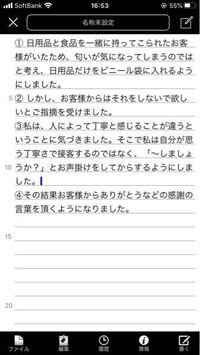 SoftBank 16:53
名称未設定
① 日用品と食品を一緒に持ってこられたお客
様がいたため、匂いが気になってしまうのでは
と考え、日用品だけをビニール袋に入れるよう
にしました。
5 ② しかし、お客様からはそれをしないで欲し
いとご指摘を受けました。
③私は、人によって丁寧と感じることが違うと
いうことに気づきました。そこで私は自分が思
う丁寧さで接客するのではなく、「〜しましょ
10 うか？」とお声掛けをしてからするようにしま
した。
④その結果お客様からありがとうなどの感謝の
言葉を頂くようになりました。
15
20
ファイル 編集 履歴 情報 書く